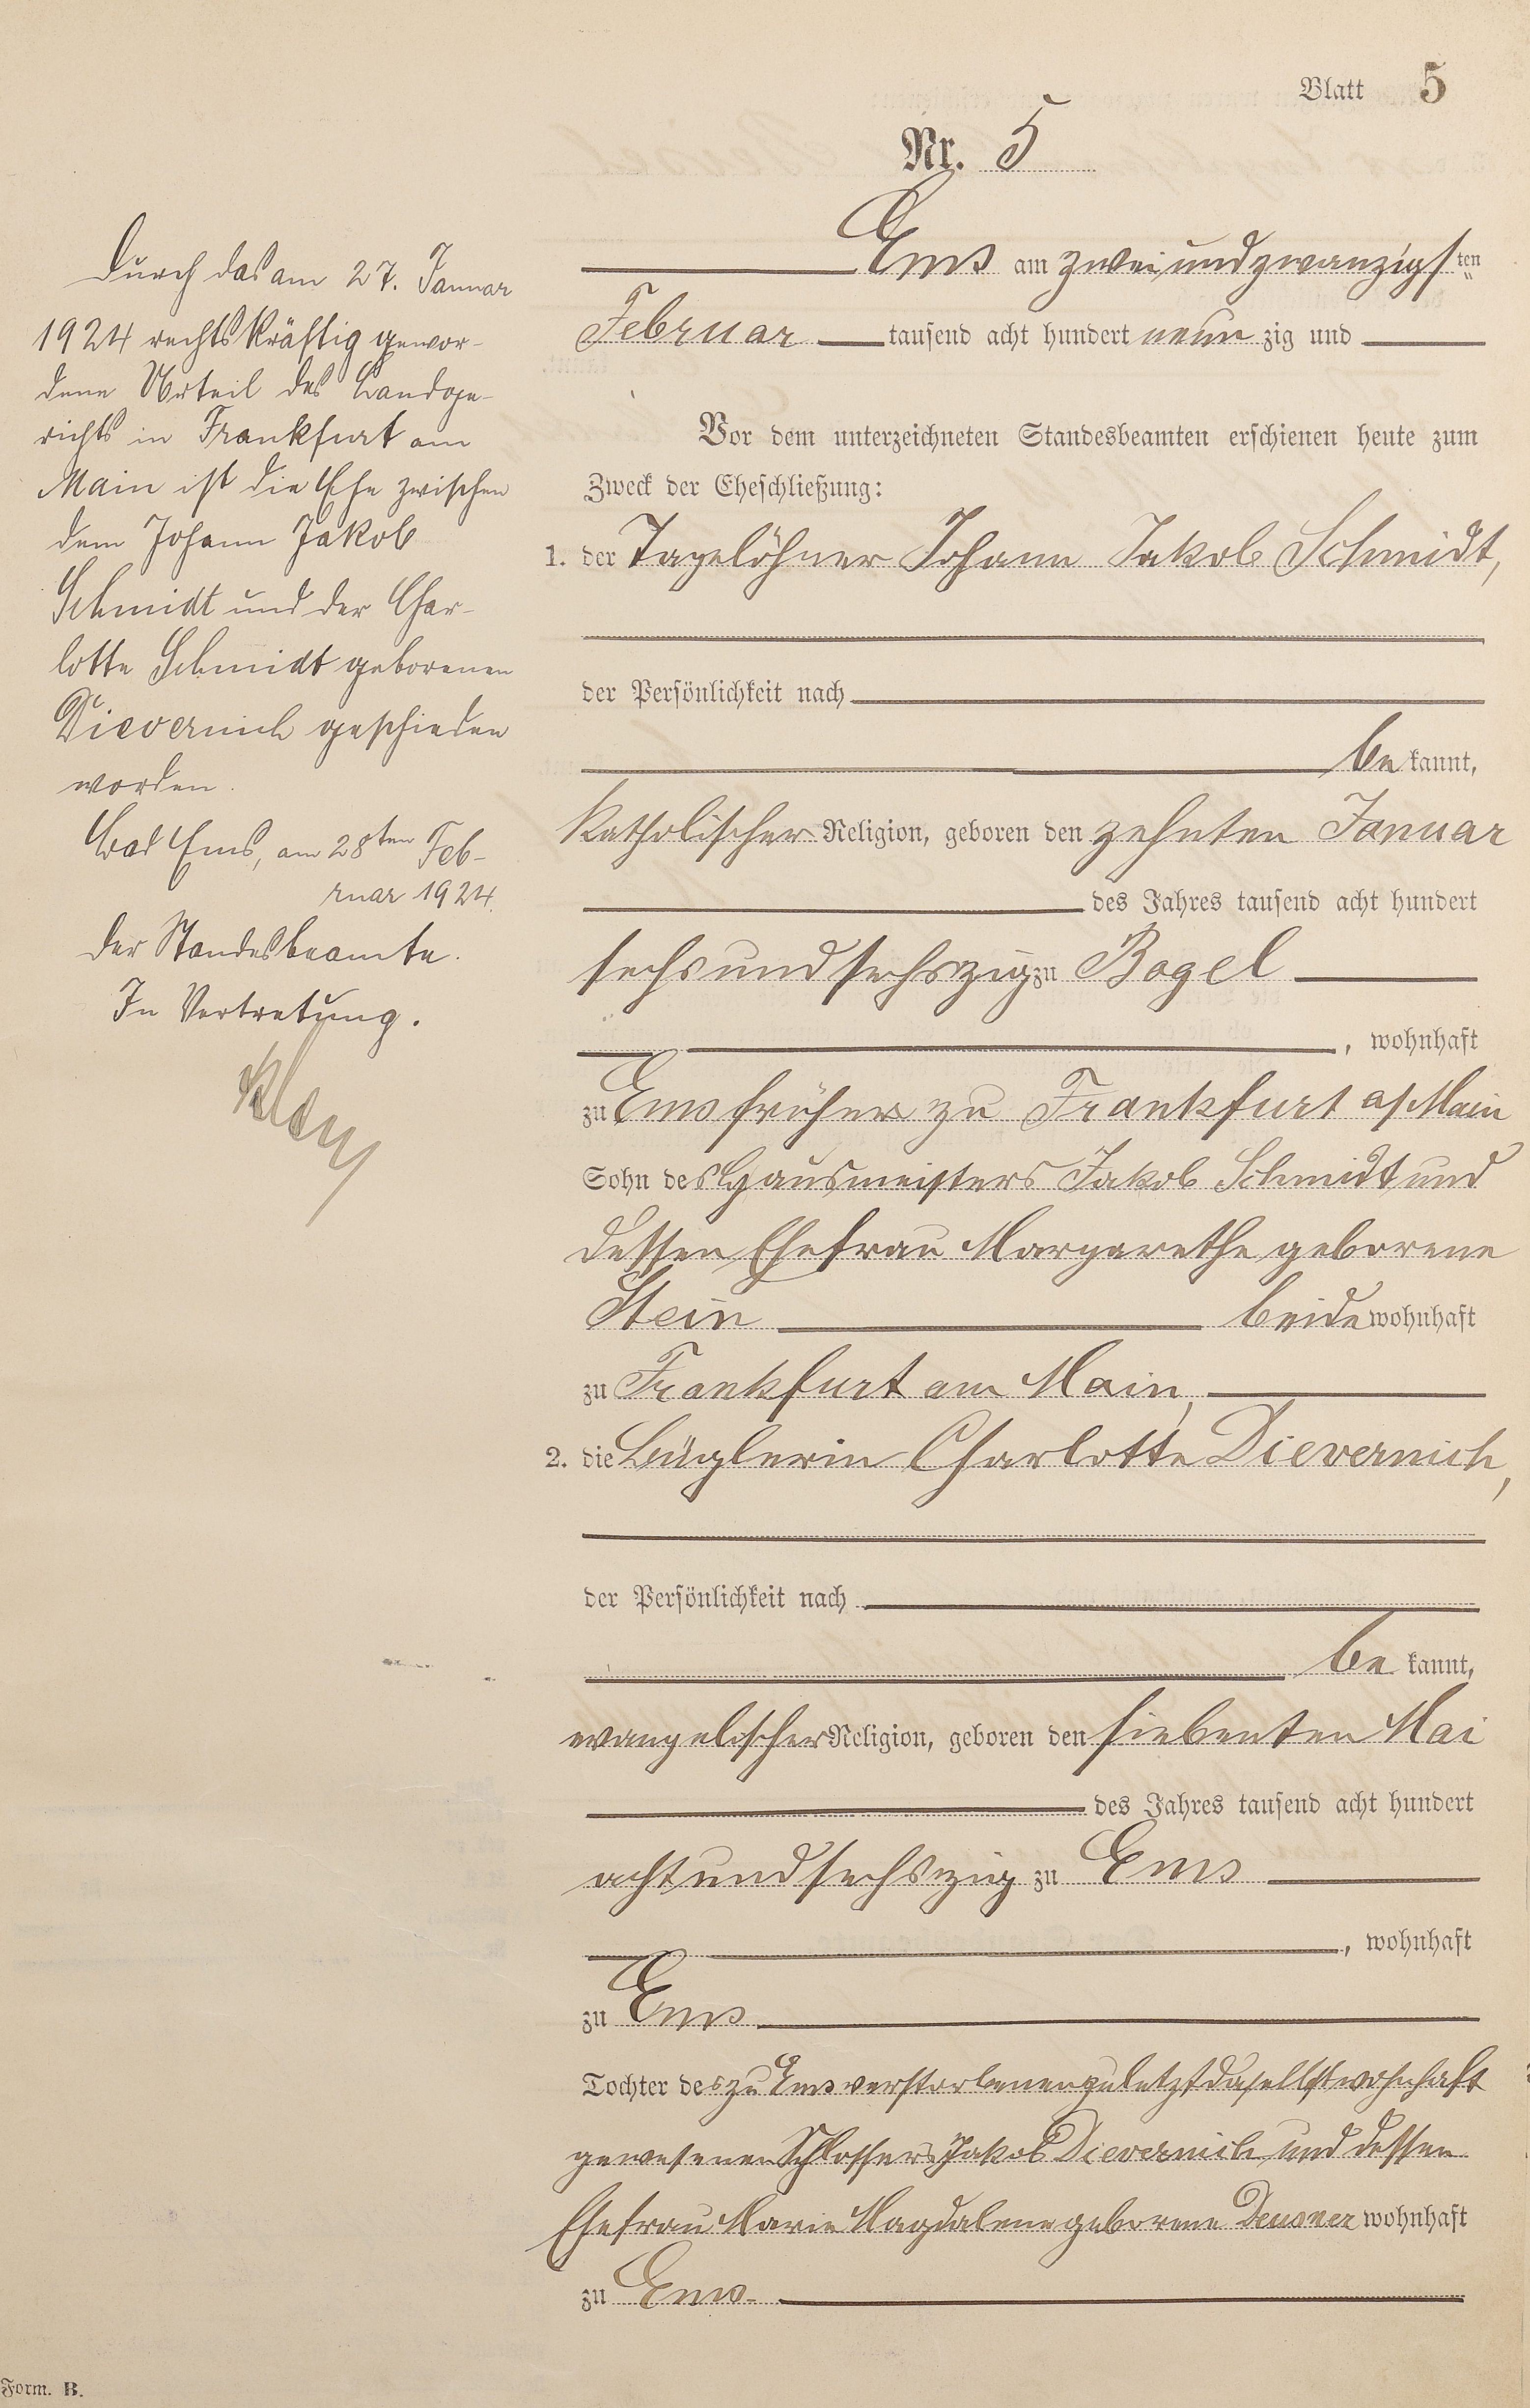 Blatt 5
Nr. 5
Ems am zweiundzwanzigsten
Februar tausend acht hundert neunzig und
Vor dem unterzeichneten Standesbeamten erschienen heute zum
Zweck der Eheschließung:
1. der Tagelöhner Johann Jakob Schmidt,
der Persönlichkeit nach
bekannt,
katholischer Religion, geboren den zehnten Januar
des Jahres tausend acht hundert
sechsundsechszig zu Bogel
, wohnhaft
zu Ems früher zu Frankfurt a/Main
Sohn des Hausmeisters Jakob Schmidt und
dessen Ehefrau Margarethe geborene
Stein beide wohnhaft
zu Frankfurt am Main,
2. die Büglerin Charlotte Dievernich,
der Persönlichkeit nach
bekannt,
evangelischer Religion, geboren den siebenten Mai
des Jahres tausend acht hundert
achtundsechszig zu Ems
, wohnhaft
zu Ems
Tochter des zu Ems verstorbenen zuletzt daselbst wohnhaft
gewesenen Schlossers Jakob Dievernich und dessen
Ehefrau Marie Magdalene geborene Deusner wohnhaft
zu Ems
Durch das am 27. Januar
1924 rechtskräftig gewor-
dene Urteil des Landge-
richts in Frankfurt am
Main ist die Ehe zwischen
dem Johann Jakob
Schmidt und der Char-
lotte Schmidt geborenen
Dievernich geschieden
worden.
Bad Ems, am 28ten Feb-
ruar 1924.
Der Standesbeamte.
In Vertretung.
Form. B.